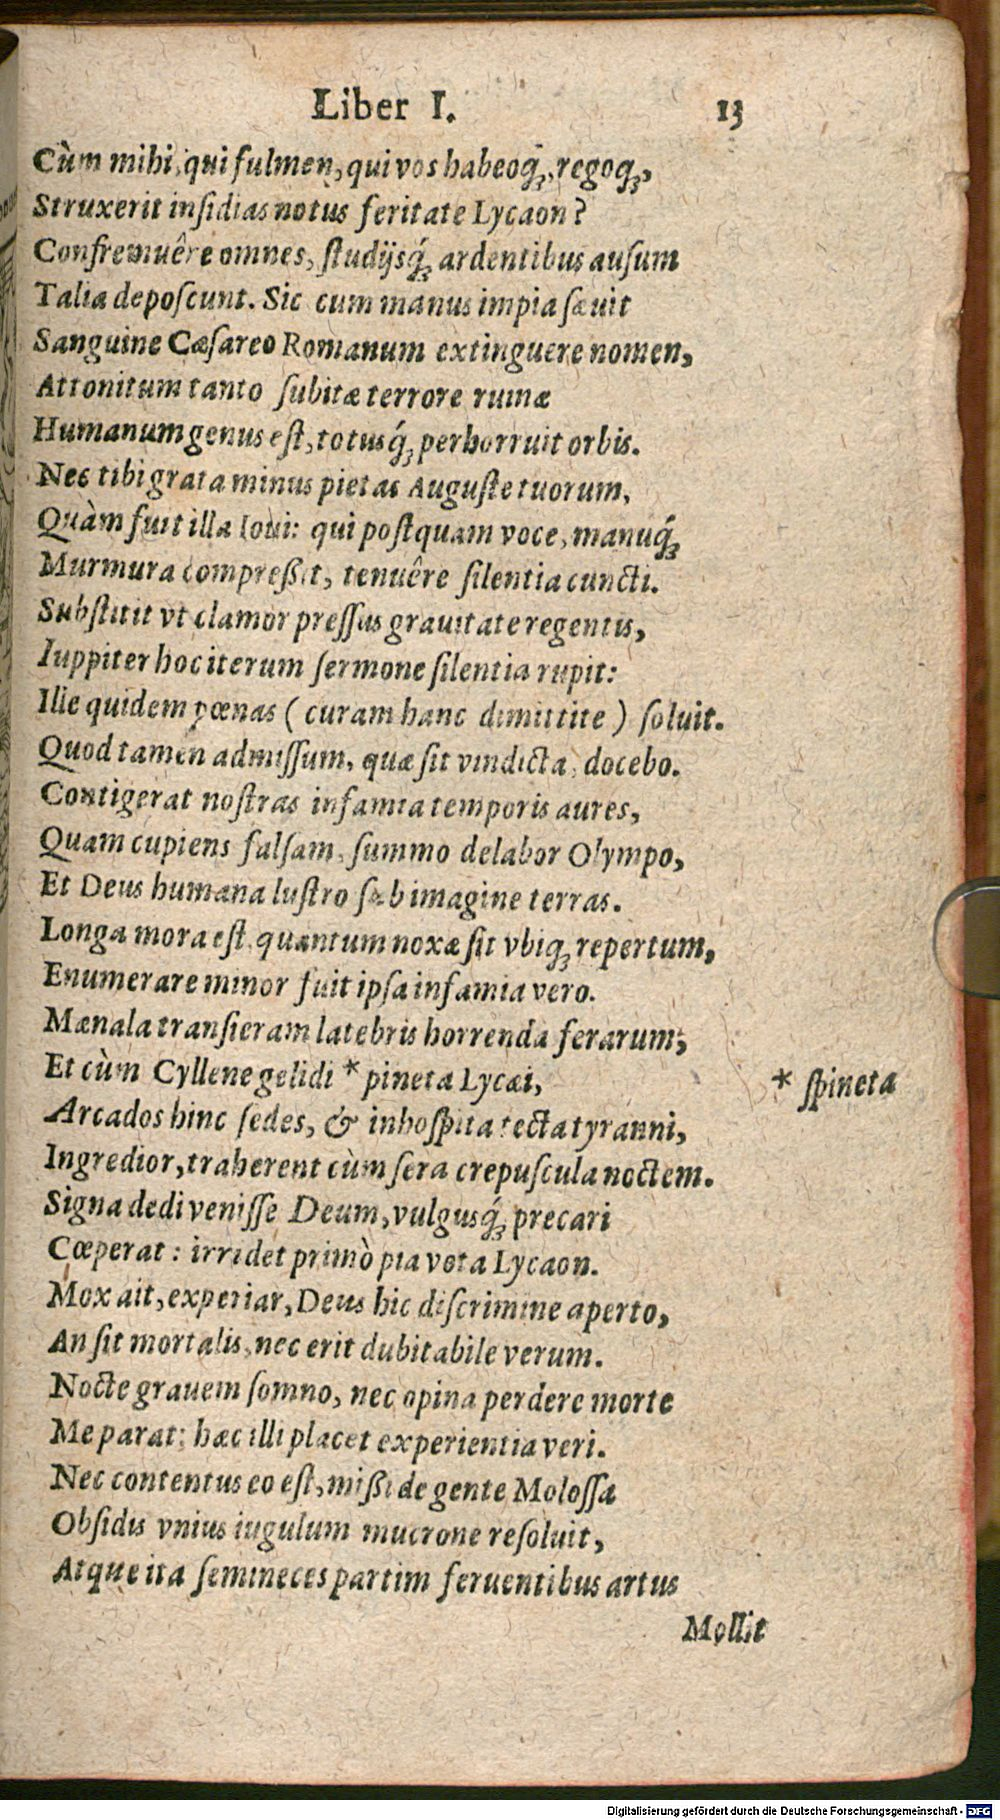 Liber I. 13
Cùm mihi, qui fulmen, qui vos habeoq́;, regoq́;,
Struxerit insidias notus feritate Lycaon?
Confremuêre omnes, studijsq́; ardentibus ausum
Talia deposcunt. Sic cum manus impia sæuit
Sanguine Cæsareo Romanum extinguere nomen,
Attonitum tanto subitæ terrore ruinæ
Humanum genus est, totusq́; perhorruit orbis.
Nec tibi grata minus pietas Auguste tuorum,
Quàm fuit illa Ioui: qui postquam voce, manuq́;
Murmura compreßit, tenuêre silentia cuncti.
Substitit vt clamor pressus grauitate regentis,
Iuppiter hoc iterum sermone silentia rupit:
Ille quidem pœnas (curam hanc dimittite) soluit.
Quod tamen admissum, quæ sit vindicta, docebo.
Contigerat nostras infamia temporis aures,
Quam cupiens falsam, summo delabor Olympo,
Et Deus humana lustro sub imagine terras.
Longa mora est, quantum noxæ sit vbiq; repertum,
Enumerare minor fuit ipsa infamia vero.
Mænala transieram latebris horrenda ferarum;
Et cùm Cyllene gelidi * pineta Lycæi,
* spineta
Arcados hinc sedes, & inhospita tecta tyranni,
Ingredior, traherent cùm sera crepuscula noctem.
Signa dedi venisse Deum, vulgusq́; precari
Cœperat: irridet primò pia vota Lycaon.
Mox ait, experiar, Deus hic discrimine aperto,
An sit mortalis, nec erit dubitabile verum.
Nocte grauem somno, nec opina perdere morte
Me parat: hæc illi placet experientia veri.
Nec contentus eo est, mißi de gente Molossa
Obsidis vnius iugulum mucrone resoluit,
Atque ita semineces partim feruentibus artus
Mollit
Digitalisierung gefördert durch die Deutsche Forschungsgemeinschaft - DFG